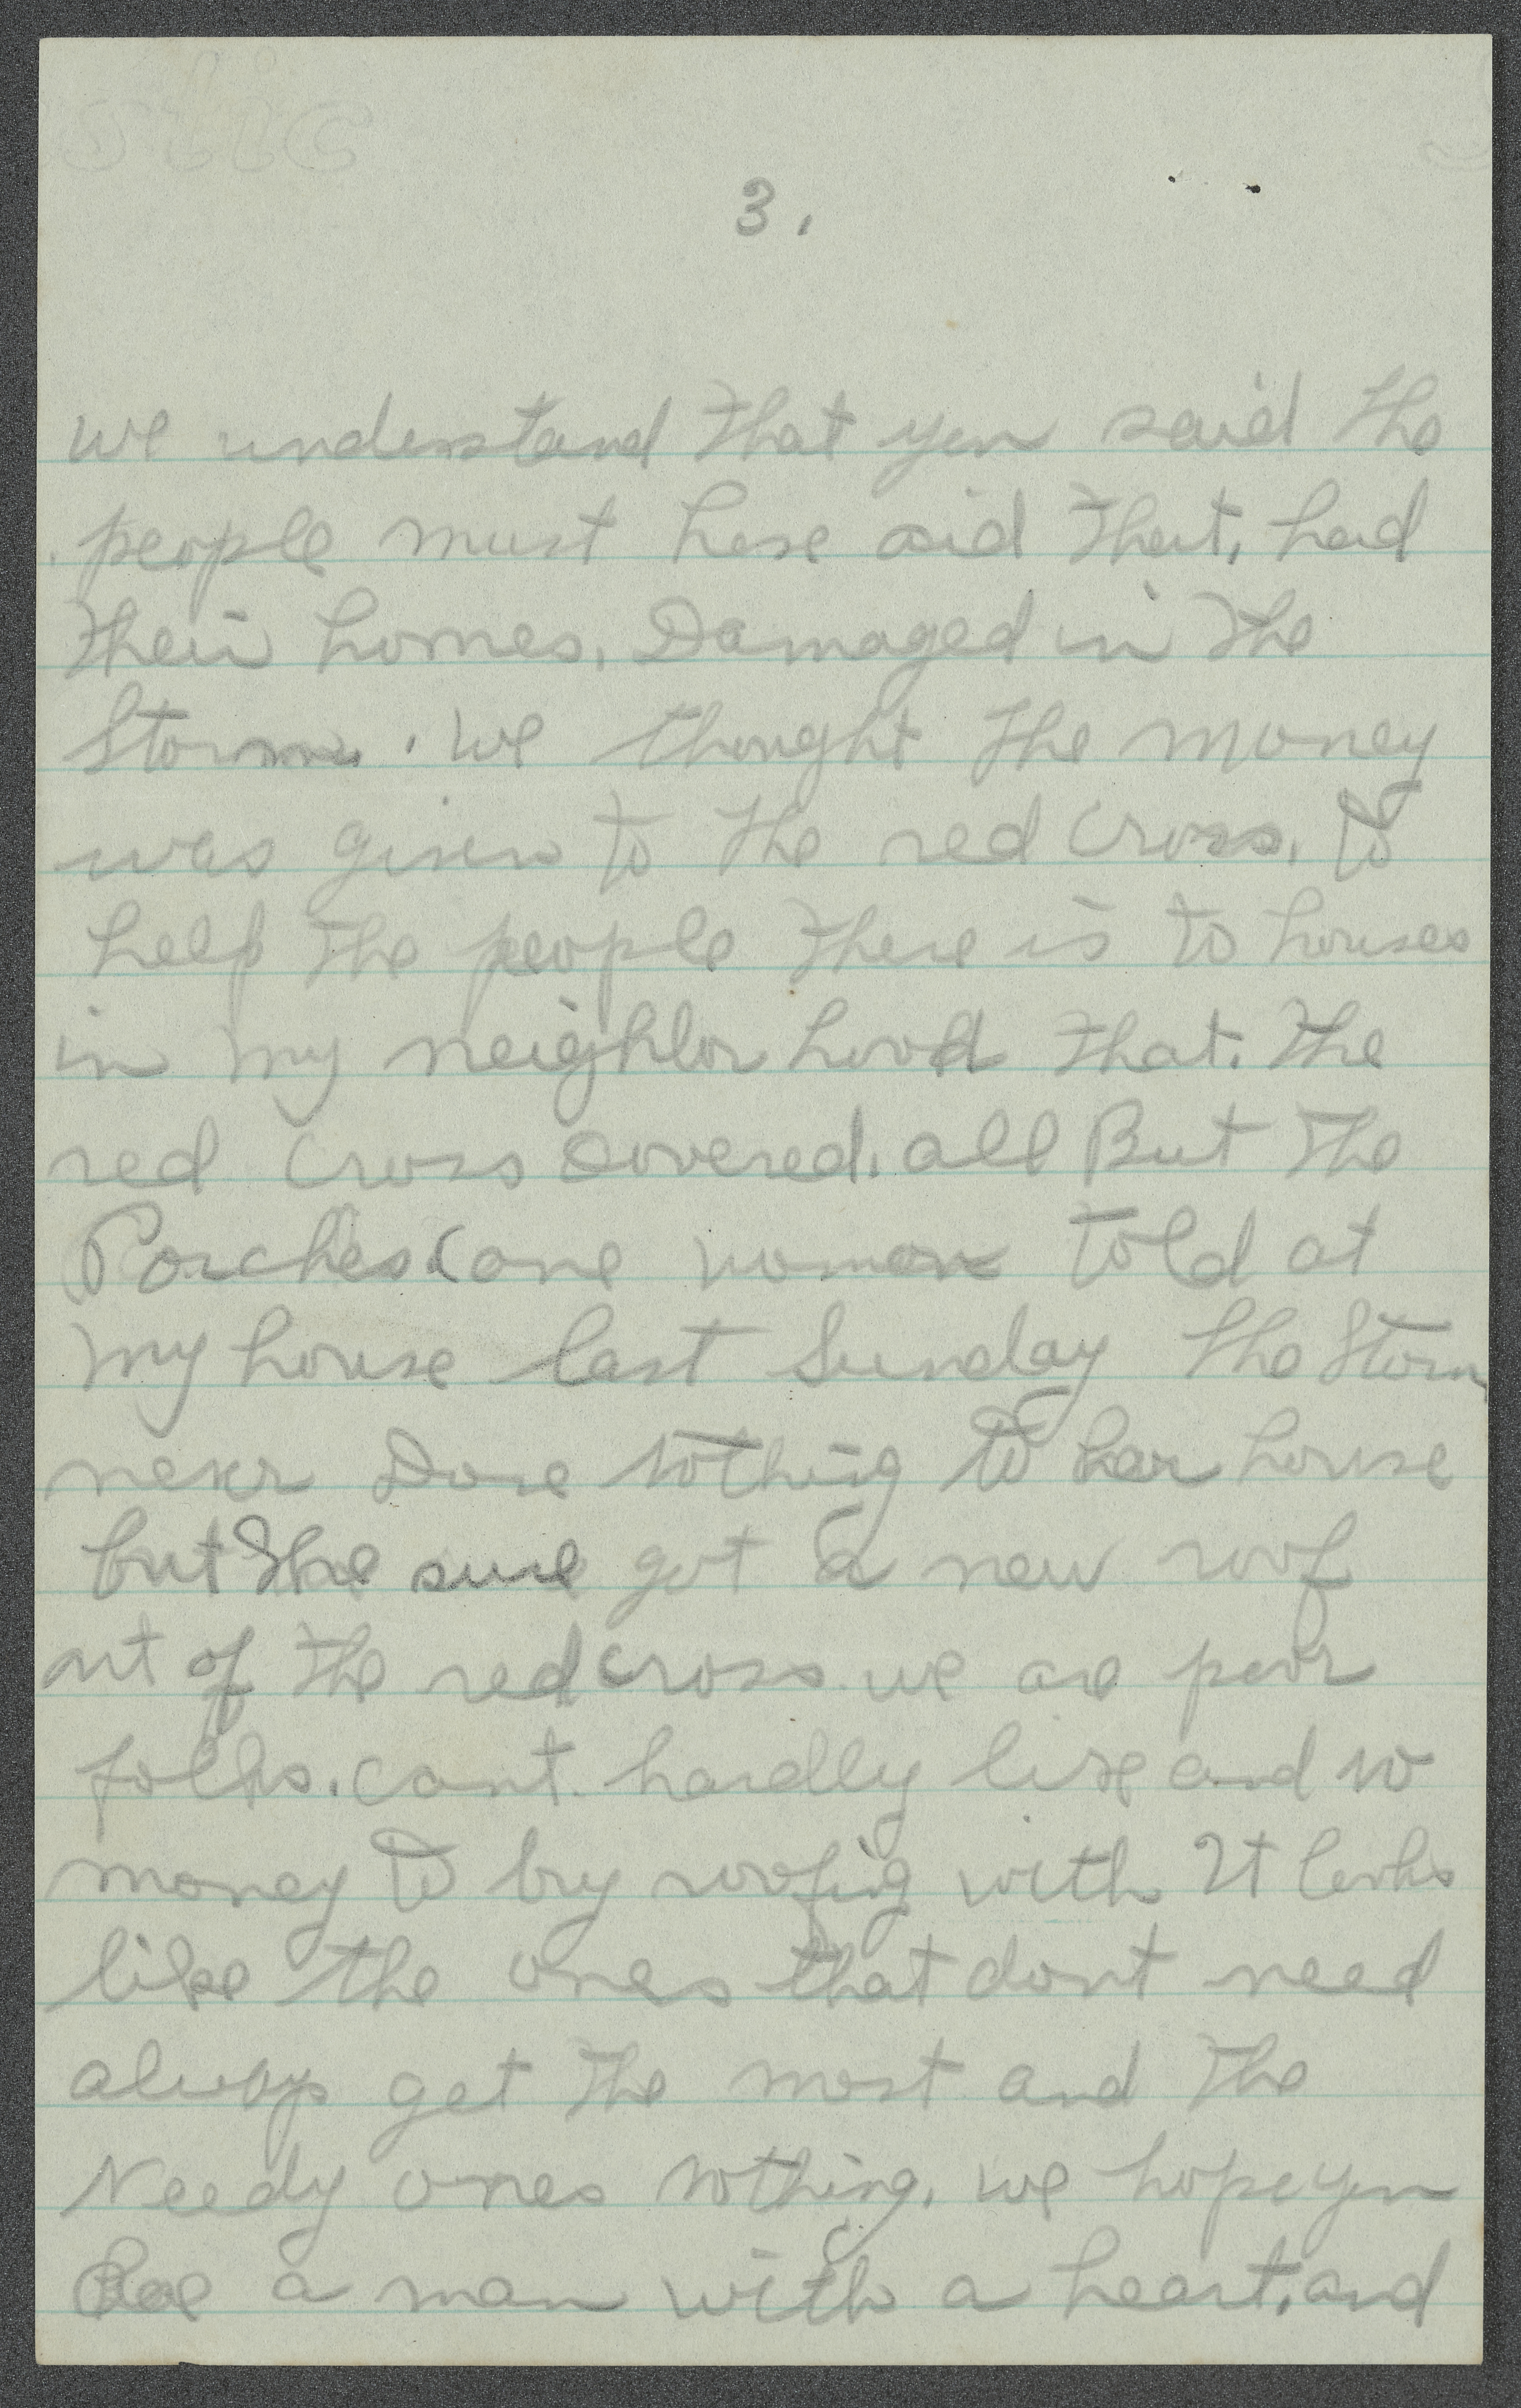 3.
we understand that you said the
people must have aid that, had
their homes, Damaged in the
Storm. we thought the money
was given to the red Cross, to
help the people there is to houses
in my neighbor hood that. the
red Cross covered. all But the
Porches (one woman told at
my house last Sunday the Storm
never Done nothing to her house
but she sure got a new roof
out of the red cross. we are poor
folks. cant. hardly live and no
money to buy roofing with It looks
like the ones that dont need
always get the most and the
Needy ones nothing. we hope you
are a man with a heart, and